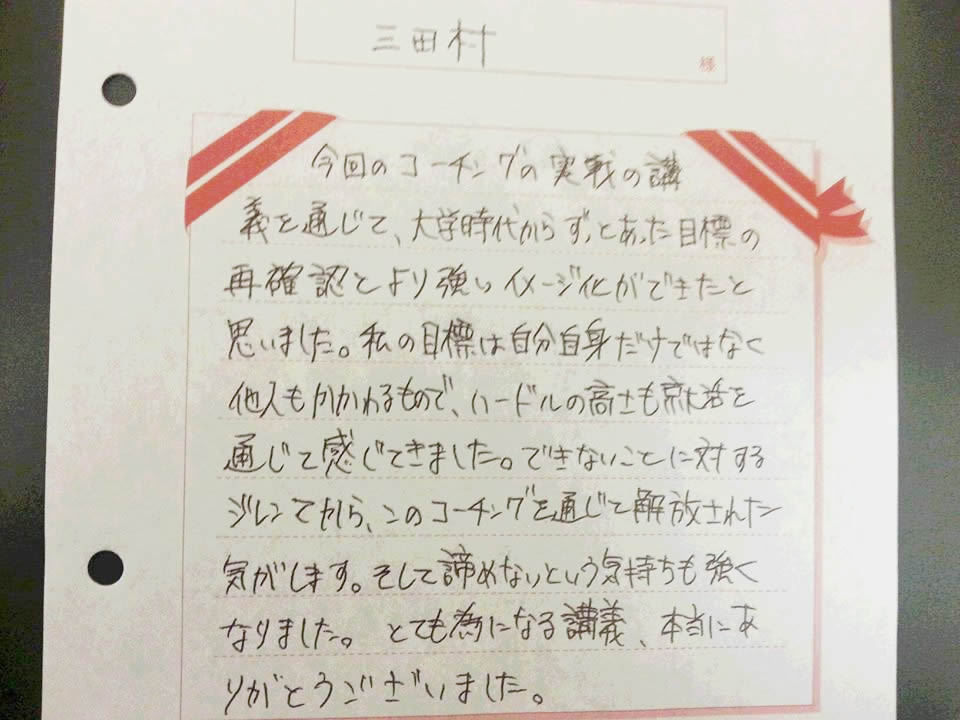 三田村
様
今回のコーチングの実戦の講
義を通じて、大学時代からずっとあった目標の
再確認とより強いイメージ化ができたと
思いました。私の目標は自分自身だけではなく
他人もかかわるもので、ハードルの高さも就活を
通じて感じてきました。できないことに対する
ジレンマから、このコーチングを通じて解放された
気がします。そして諦めないという気持ちも強く
なりました。とても為になる講義、本当にあ
りがとうございました。